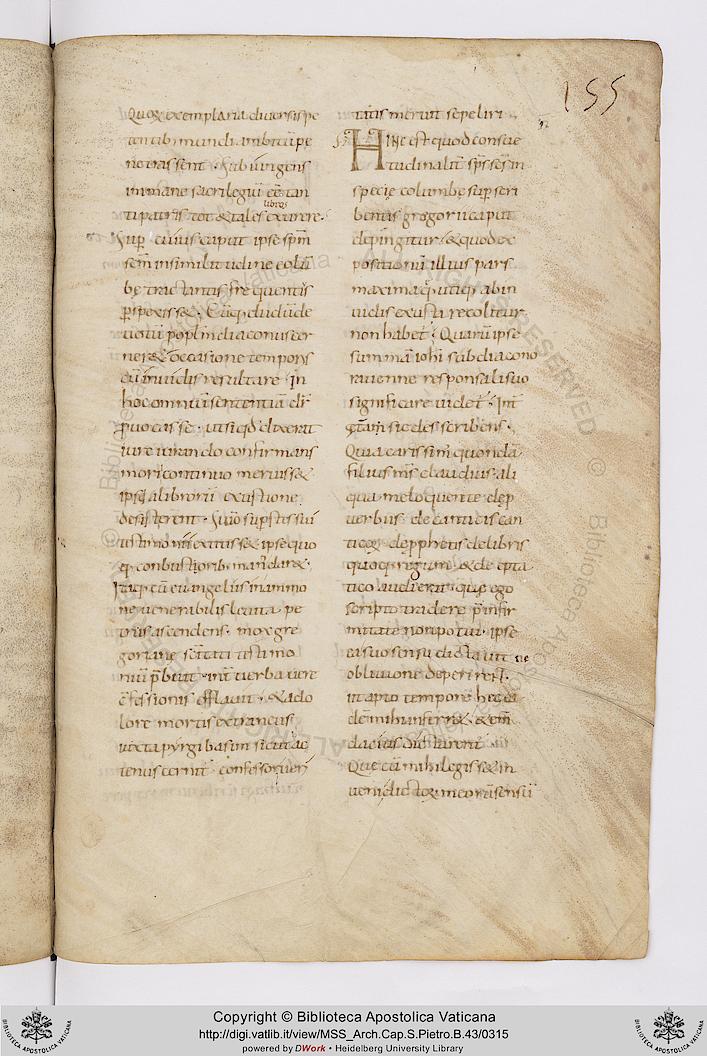 155
Quoꝝ exemplaria diversis pe
tentib; mundi ambitū pe
netrassent. Subiungens
inmane sacrilegiū eē tan
ti patris tot & tales exurere.
libros
Sup cuius caput ipse spm̄
scm̄ in similitudine colū
bę tractantis frequentis
ꝑspexiss&.
vo cū popl in diaconus cer
ner& occasione temporis
cū invidis resultare. In
hoc omniū sententiā dr̄
ꝓvocasse. ut si qd̄ dixerat
iure iurando confirmans
mori continuo meruiss&
ipsi a librorū exustione
desisterent.
Itaq; cū evangeliis in ammo
ne venerabilis levita pe
trus ascendens. mox gre
gorianę scitati testimo
niū p̄buit. int verba verę
cfessionis efflavit. & a do
lore mortis extraneus
iuxta pyrgi basim sicut ac
tenus cernit confessor veri
tatis meruit sepeliri
HINC est quod consue
tudinalit sps scs in
specię columbę sup scri
bentis gregorii caput
depingitur. & quod ex
positionū illius pars
maxima q; utiq; ab in
vidis exusta recolitur
non habet. Quarū ipse
summā iohi subdiacono
ravenne responsali suo
significare videt. Int
cętera sic describens.
Quia carissim quondā
filius ms claudius. ali
qua me loquente de ꝓ
verbiis. de canticis can
ticoꝝ. de ꝓphetis de libris
quoq; regum. & de epta
tico audierat. que ego
scripto tradere p̄ infir
mitate non potui. ipse
ea suo sensu dictavit ne
oblivione deperirent.
ut apto tempore hec ea
dē mihi inferr&. & em̄
datius dictarent.
Que cū mihi legiss& in
veni dictoꝝ meorū sensū
Copyright © Biblioteca Apostolica Vaticana
http://digi.vatlib.it/view/MSS_Arch.Cap.S.Pietro.B.43/0315
powered by DWork • Heidelberg University Library
BIBLIOTECA APOSTOLICA VATICANA
BIBLIOTECA APOSTOLICA VATICANA